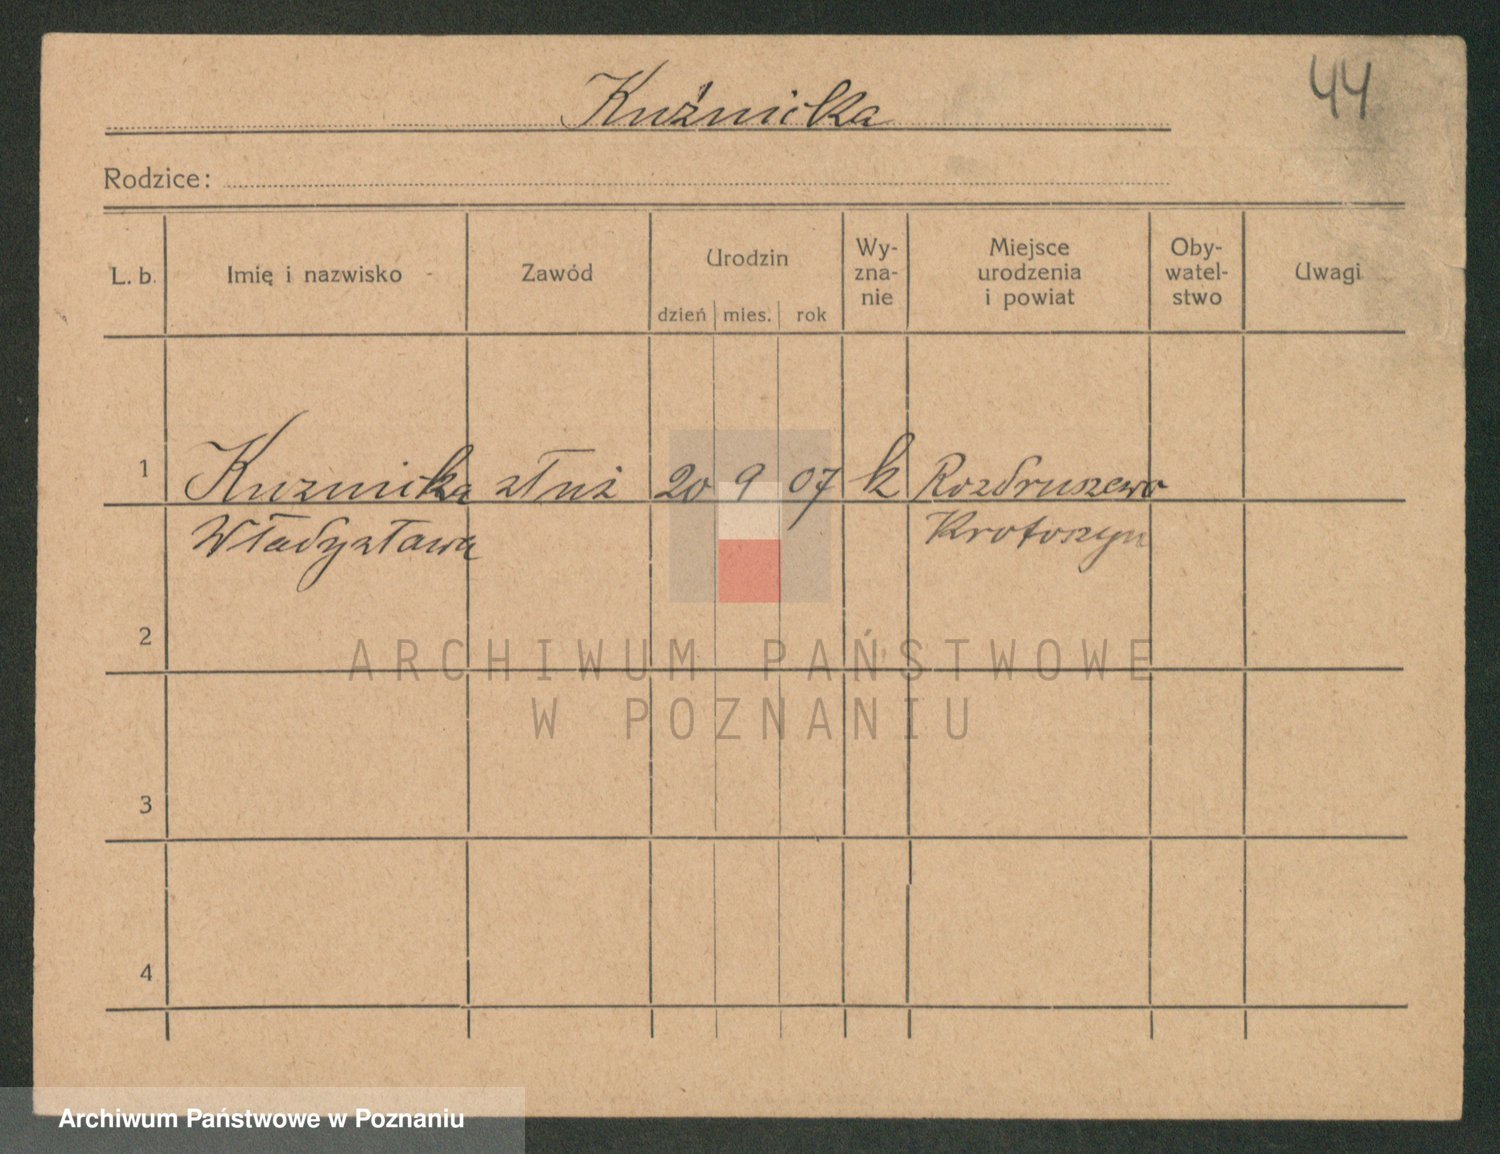 44
Kuźnicka
Rodzice:
L. b. Imię i nazwisko Zawód Urodzin dzień mies. rok Wy-zna-nie Miejsce urodzenia i powiat Oby-watel-stwo Uwagi
1 Kuznicka służ 20 9 07 k Rozdruszewo
Władysława Krotoszyn
2
3
4
ARCHIWUM PAŃSTWOWE
W POZNANIU
Archiwum Państwowe w Poznaniu